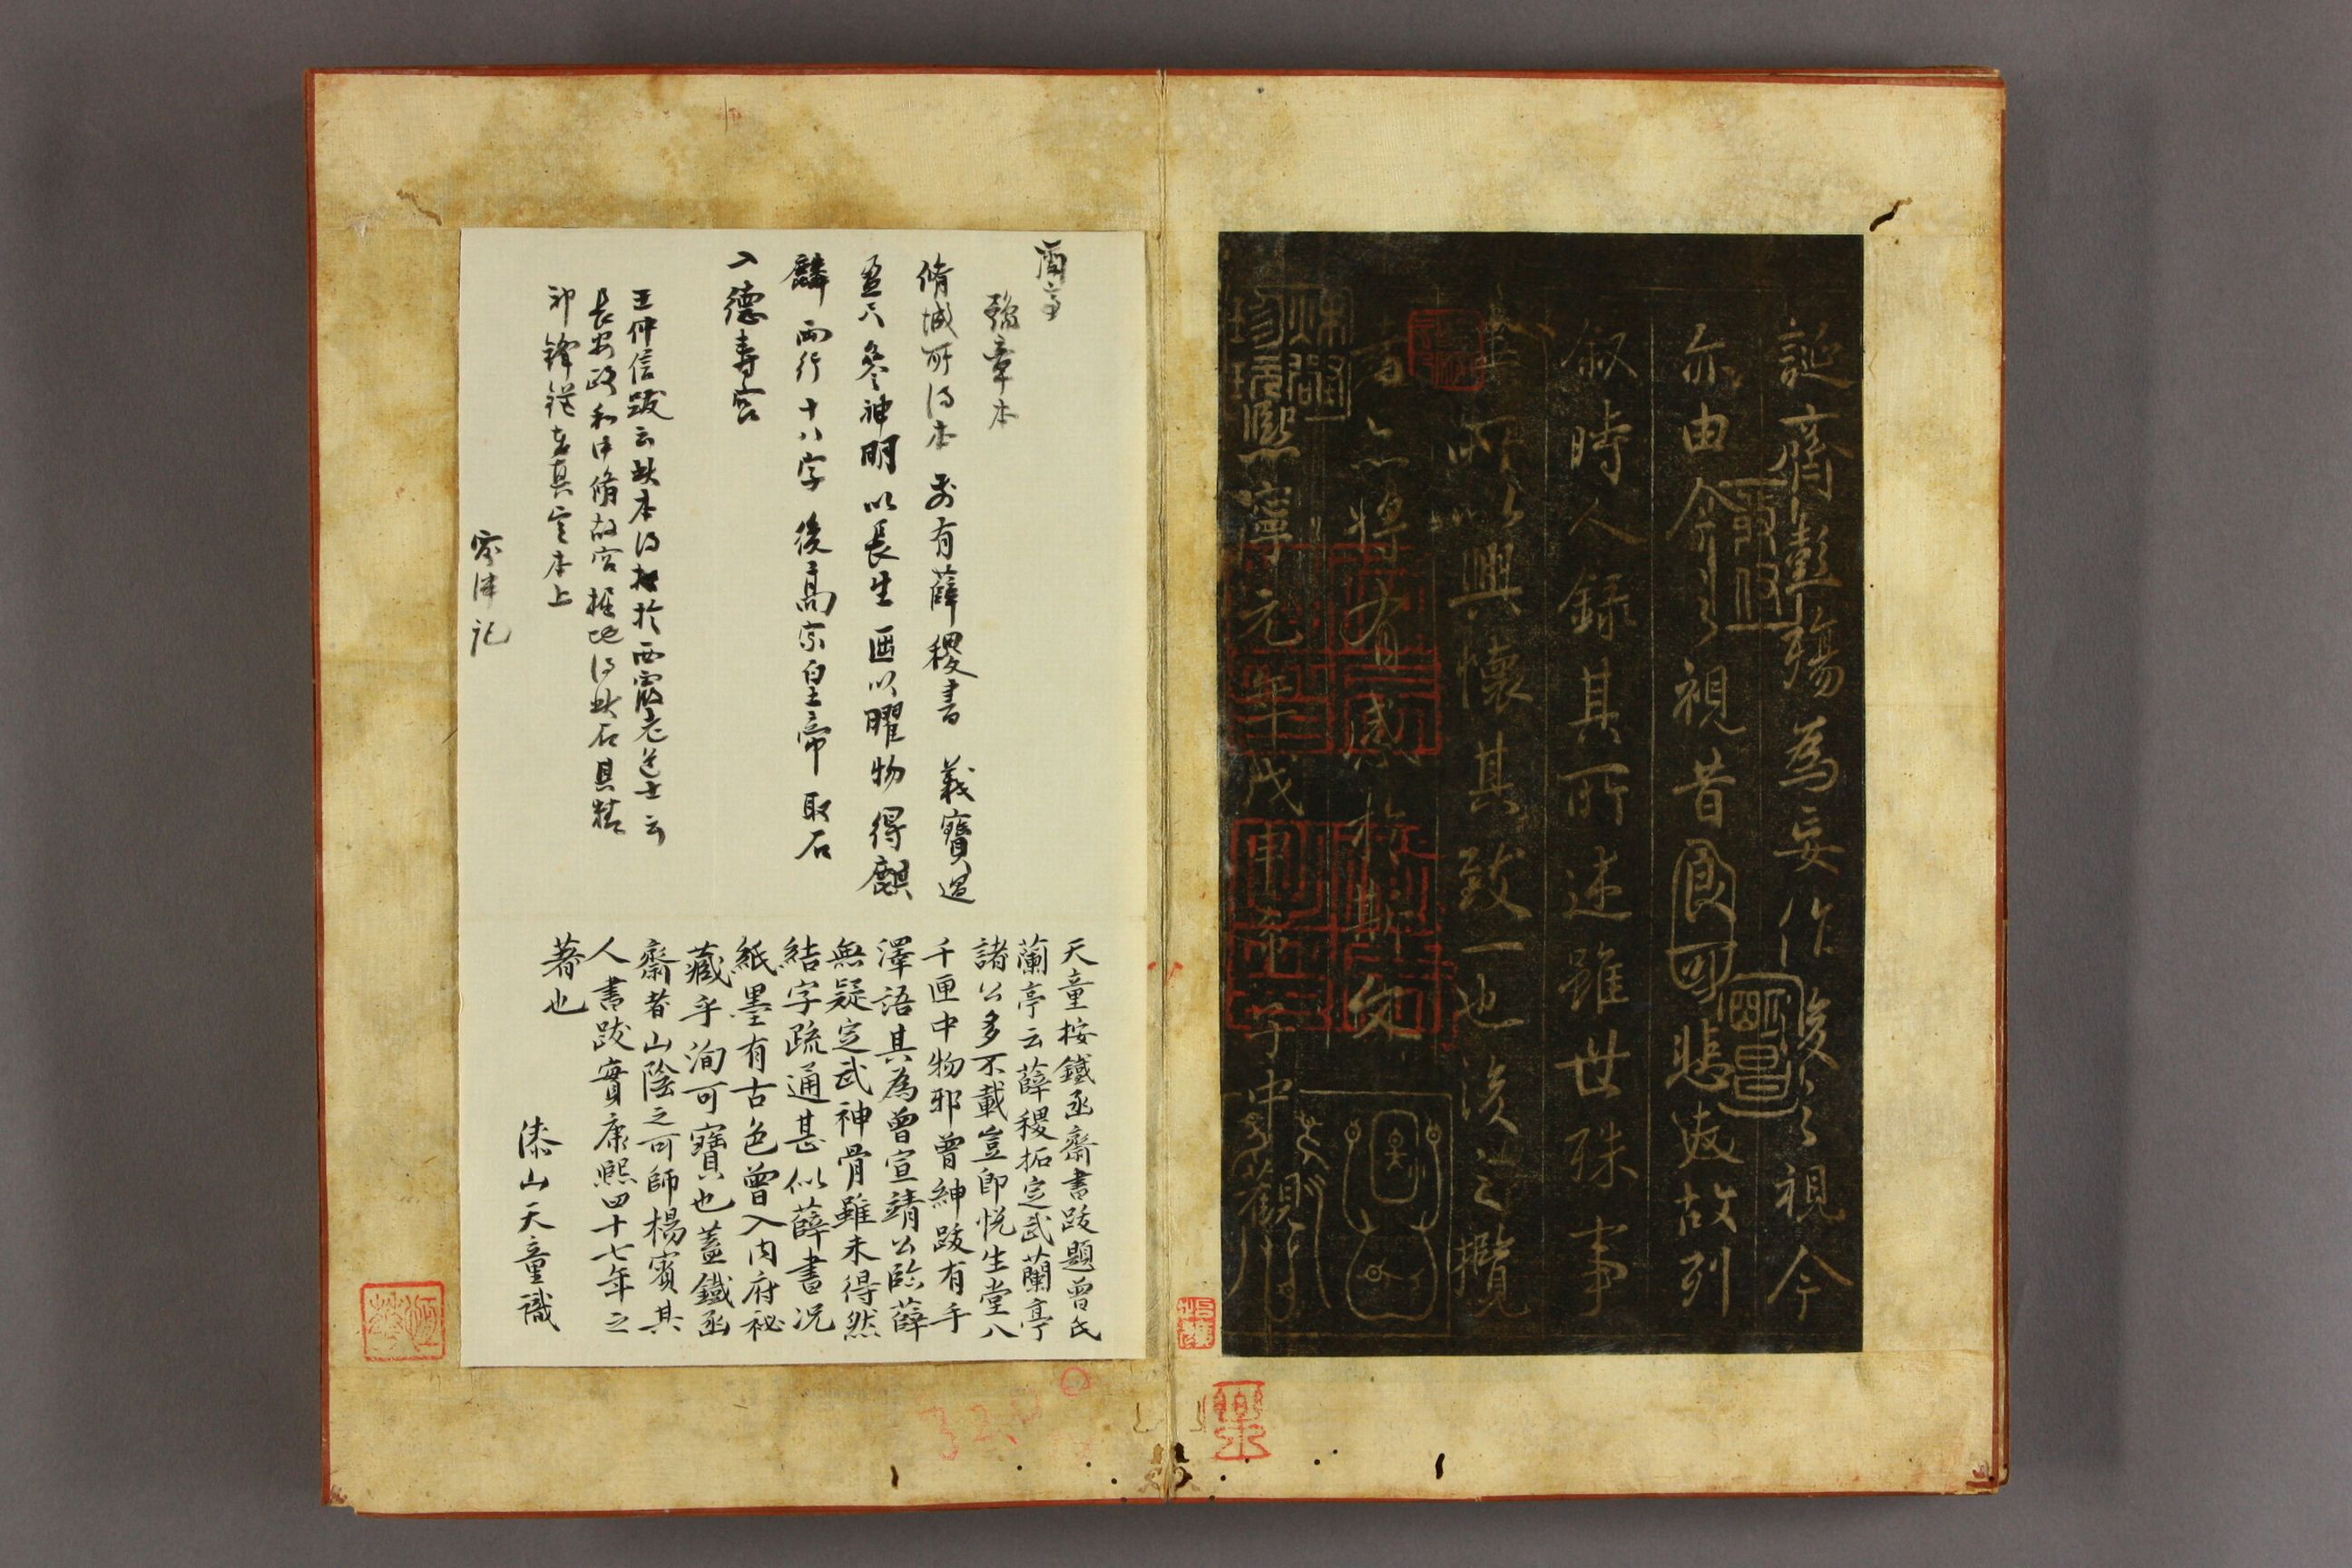 誕齊彭殤為妄作後之視今
亦由今之視昔良可悲夫故列
叙時人錄其所述雖世殊事
異所以興懷其致一也後之攬
者亦將有感於斯文
熙寧元年戊申
觀
脩城所得本 前有薛稷書 義寶過
盈尺參神明以長生匣以曜物得麒
麟 兩行十八字 後高宗皇帝取石
入德壽宮
王仲信跋云此本得於西霞老道士云
長安政和中脩故宮掘地得此石其精
神鋒鋩在真定本上
天童按鐵函齋書跋題曾氏
蘭亭云薛稷拓定武蘭亭
諸公多不載豈即悅生堂八
千匣中物邪曾紳跋有手
澤語其為曾宣靖公臨薛
無疑定武神骨雖未得然
結字疏通甚似薛書況
紙墨有古色曾入內府祕
藏乎洵可寶也蓋鐵函
齋者山陰之可師楊賓其
人書跋實康熙四十七年之
著也
漆山天童識